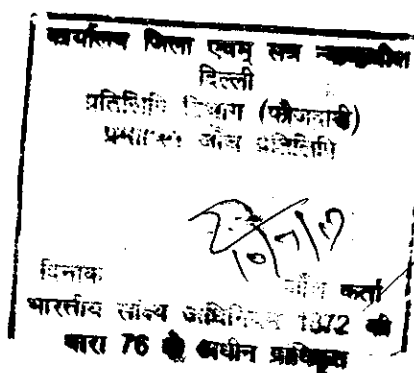 कार्यालय जिला एवम् सत्र न्यायाधीश
दिल्ली
प्रतिलिपि विभाग (फौजदारी)
प्रमाणित जाँच प्रतिलिपि
10/7/
दिनांक जाँच कर्ता
भारतीय साक्ष्य अधिनियम 1872 की
धारा 76 के अधीन प्राधिकृत